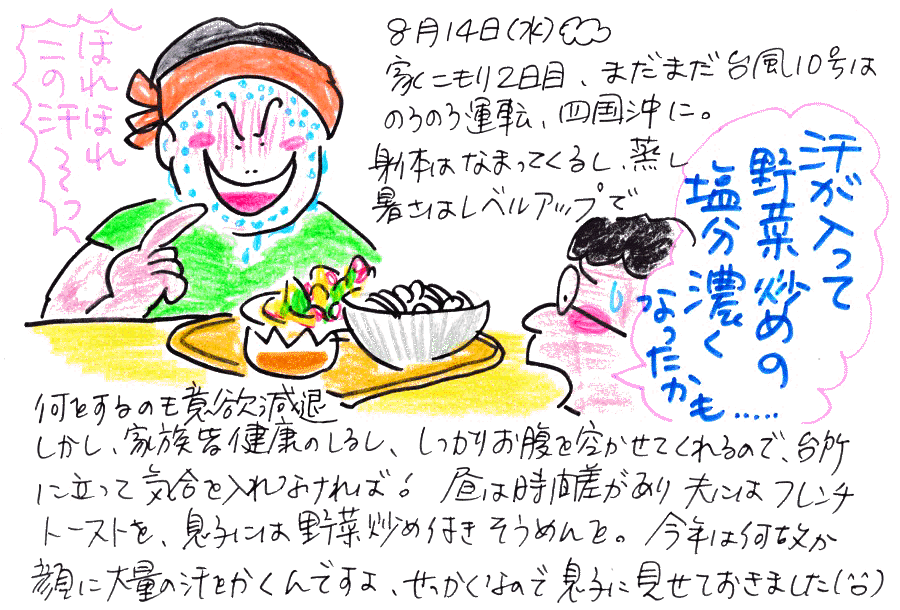 8月14日(水)
家こもり2日目、まだまだ台風10号は
のろのろ運転、四国沖に。
身体はなまってくるし、蒸し
暑さはレベルアップで
ほれほれ
この汗そぅっ
汗が入って
野菜炒めの
塩分濃く
なったかも.....
何をするのも意欲減退
しかし、家族皆健康のしるし、しっかりお腹を空かせてくれるので、台所
に立って気合を入れなければ!昼は時間差があり夫にはフレンチ
トーストを、息子には野菜炒め付きそうめんを。今年は何故か
顔に大量の汗をかくんですよ、せっかくなので息子に見せておきました(^^)